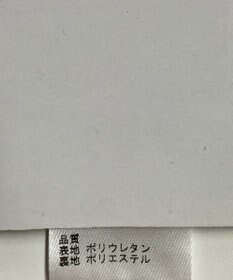 品質
表地 ポリウレタン
裏地 ポリエステル